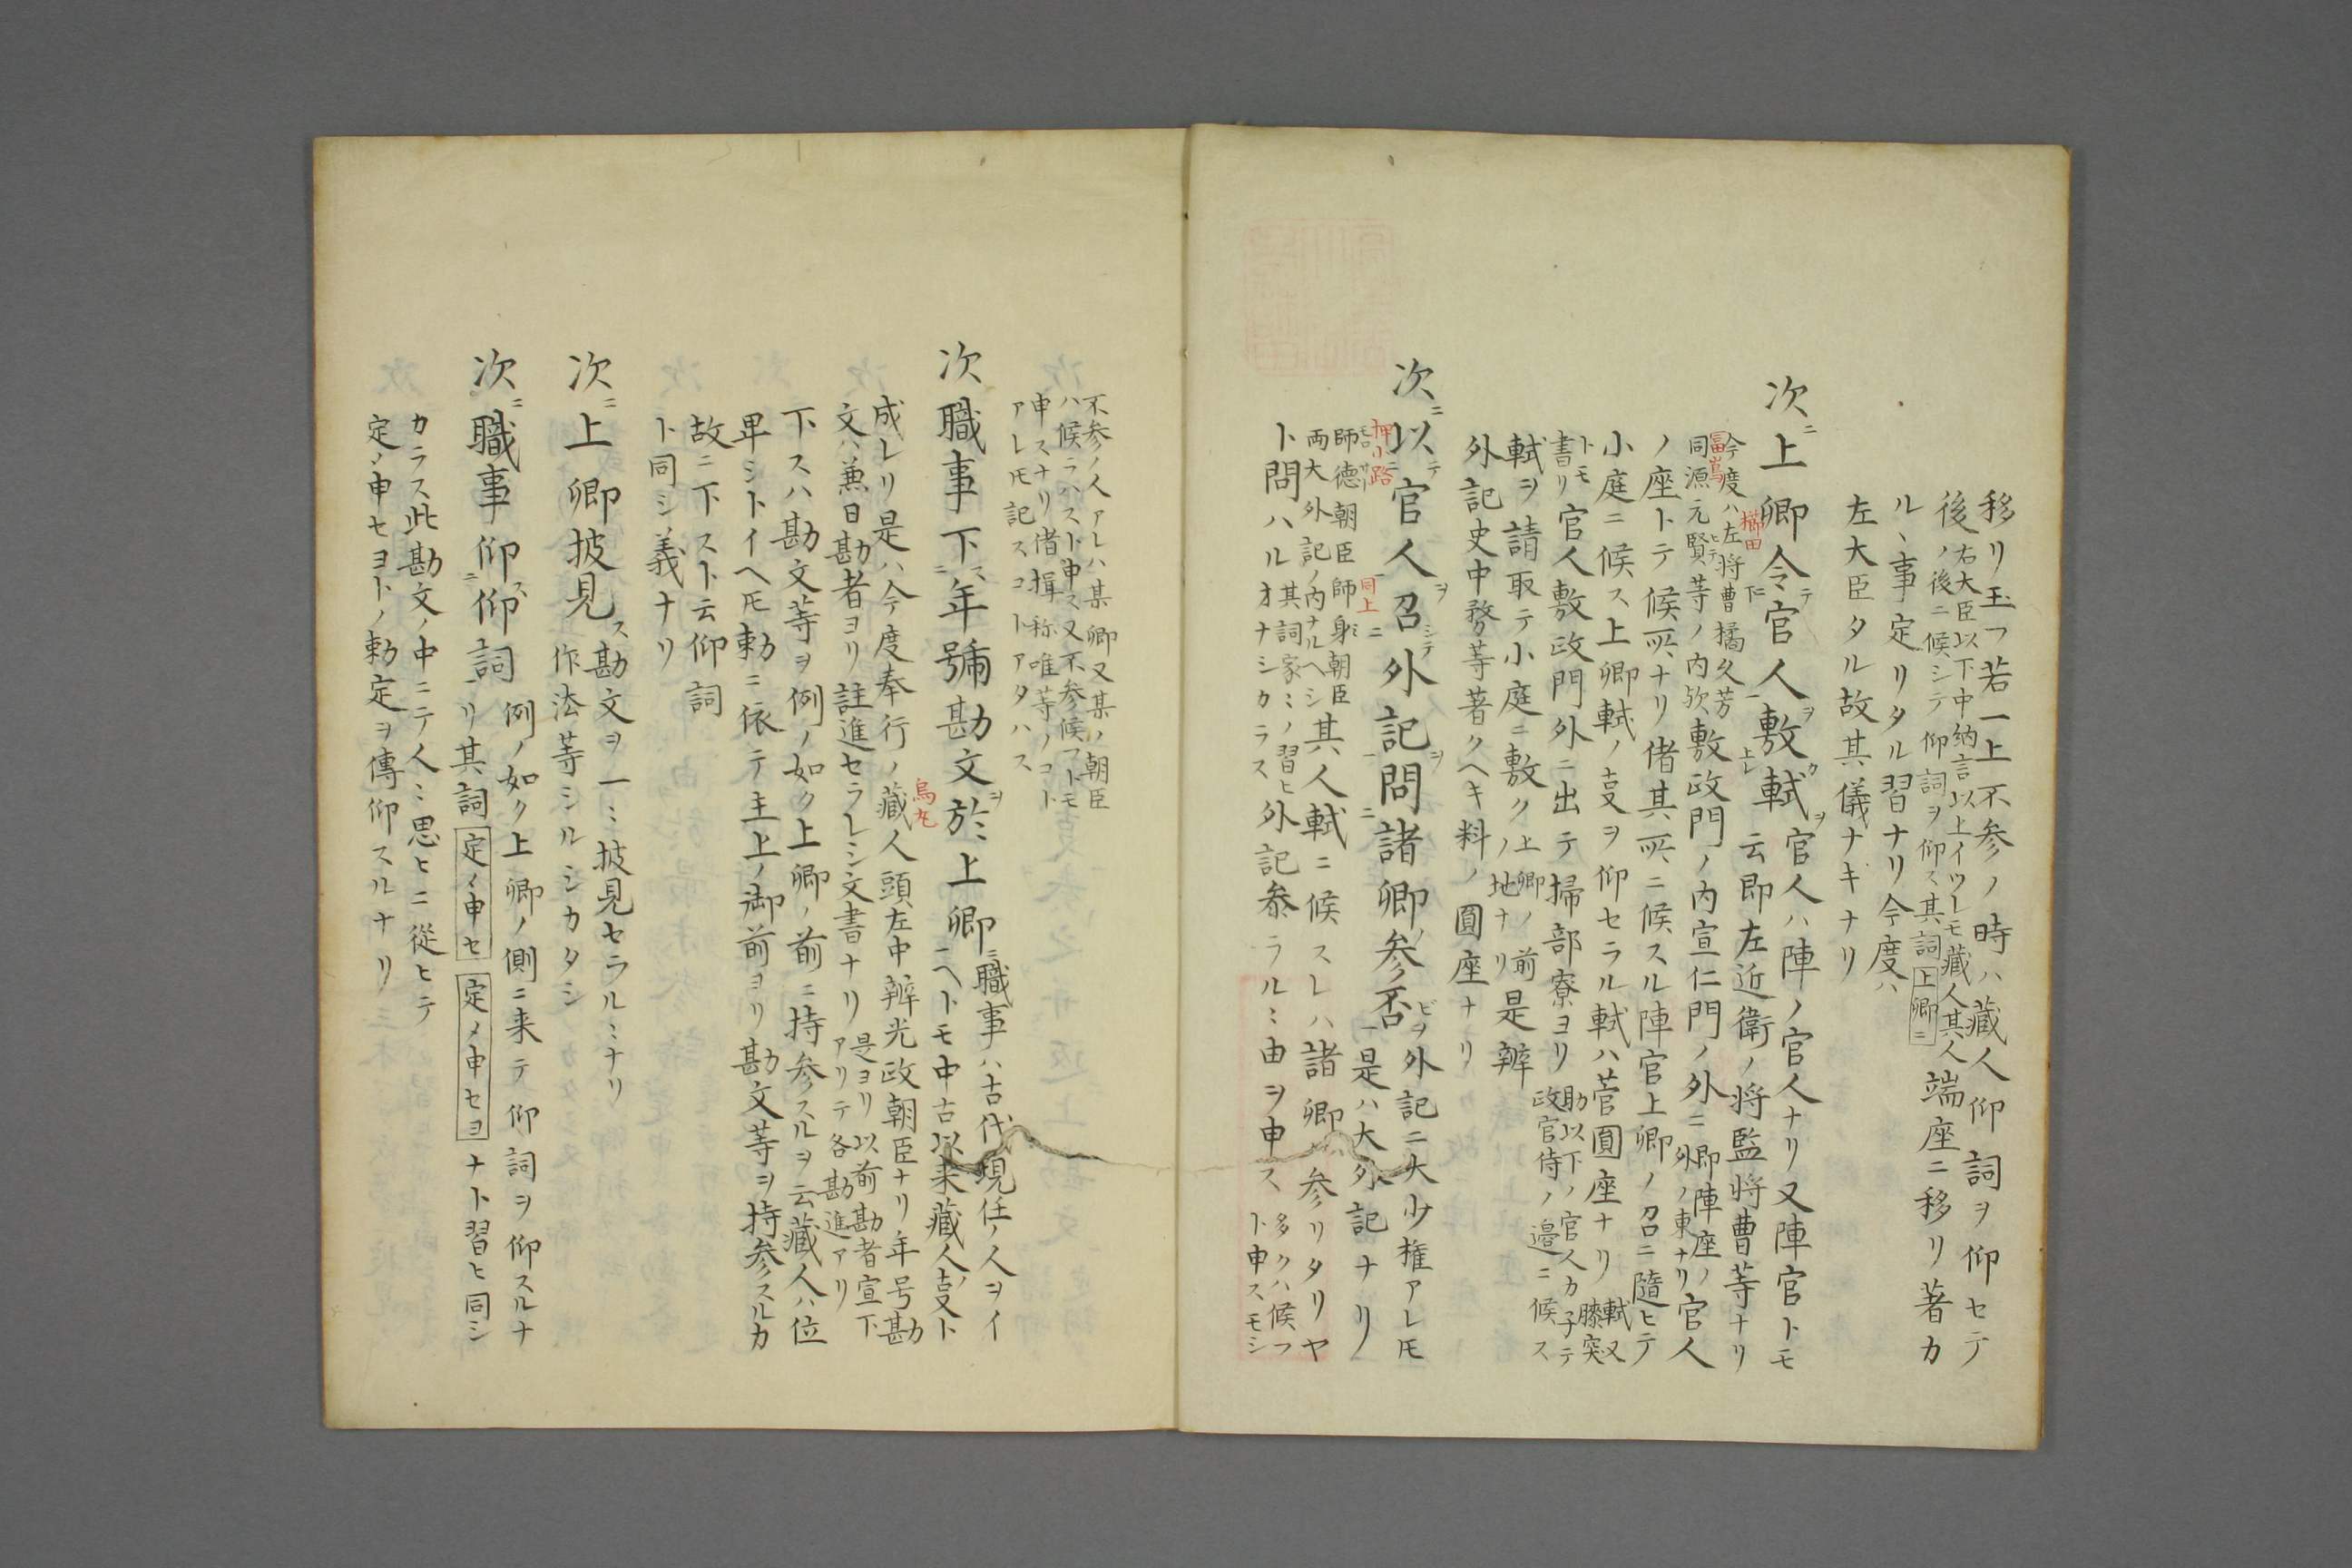 移リ玉フ若一上不参ノ時ハ藏人仰詞ヲ仰セテ
後右大臣以下中納言以上イツレモ藏人其人
ノ後ニ候シテ仰詞ヲ仰ス其詞上卿ニ
端座ニ移リ著カ
ル、事定リタル習ナリ今度ハ
左大臣タル故其儀ナキナリ
次ニ上卿令テ官人ヲ敷カ軾ヲ官人ハ陣ノ官人ナリ又陣官トモ
云即左近衛ノ将監将曹等ナリ
今度ハ左将曹橘久芳
櫛田
冨嶌
同源元賢等ノ内欤
敷政門ノ内宣仁門ノ外ニ
即陣座ノ
外ノ東ナリ
官人
ノ座トテ候所ナリ偖其所ニ候スル陣官上卿ノ召ニ隨ヒテ
小庭ニ候ス上卿軾ノ㕝ヲ仰セラル軾ハ菅圓座ナリ
軾又
膝突
トモ
書リ
官人敷政門外ニ出テ掃部寮ヨリ
助以下ノ官人カ子テ
政官侍ノ邉ニ候ス
軾ヲ請取テ小庭ニ敷ク
上卿ノ前
ノ地ナリ
是辨
外記史中務等著クヘキ料ノ圓座ナリ
次ニ以テ官人ヲ召シテ外記ヲ問諸卿ノ参否ヲ外記ニ大少権アレ𪜈
是ハ大外記ナリ
押小路
師徳朝臣師身朝臣
同上
両大外記ノ内ナルヘシ
其人軾ニ候スレハ諸卿ハ参リタリヤ
ト問ハル
其詞家ミノ習ヒ
オナシカラス
外記参ラルミ由ヲ申ス
多クハ候フ
ト申スモシ
不参ノ人アレハ某卿又某ノ朝臣
ハ候ラハスト申ス又不参候フトモ
申スナリ偖揖称唯等ノコト
アレ𪜈記スコトアタハス
次職事下ス年號勘文ヲ於上卿ニ職事ハ古代現任ノ人ヲイ
ヘトモ中古以来藏人ノ㕝ト
成レリ是ハ今度奉行ノ藏人頭左中辨光政朝臣ナリ年号勘
烏丸
文ハ兼日勘者ヨリ註進セラレシ文書ナリ
是ヨリ以前勘者宣下
アリテ各勘進アリ
下スハ勘文等ヲ例ノ如ク上卿ノ前ニ持参スルヲ云藏人ハ位
卑シトイヘ𪜈勅ニ依テ主上ノ御前ヨリ勘文等ヲ持参スルカ
故ニ下スト云仰詞
ト同シ義ナリ
次ニ上卿披見ス勘文ヲ一ミ披見セラルミナリ
作法等シルシカタシ
次ニ職事仰ス仰詞例ノ如ク上卿ノ側ニ来テ仰詞ヲ仰スルナ
リ其詞定メ申セ定メ申セヨナト習ヒ同シ
カラス此勘文ノ中ニテ人ミ思ヒニ從ヒテ
定メ申セヨトノ勅定ヲ傳仰スルナリ